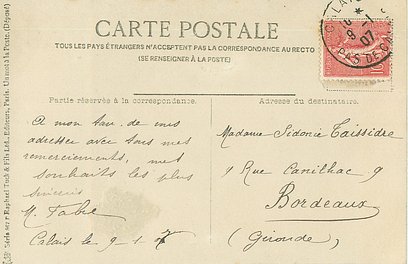 CARTE POSTALE
TOUS LES PAYS ÉTRANGERS N'ACCEPTENT PAS LA CORRESPONDANCE AU RECTO
(SE RENSEIGNER À LA POSTE)
CALAIS
9-1
07
PAS DE C
10
Partie réservée à la correspondance.
Adresse du destinataire.
A mon tour de vous
adresser avec tous mes
remerciements, mes
souhaits les plus
sincères
M. Fabre
Calais le 9-1-07
Madame Sidonie Taissidre
9 Rue Canilhac 9
Bordeaux
(Gironde)
Raphael Tuck & Fils Ltd., Editeurs, Paris. Un mot à la Poste. (Déposé)